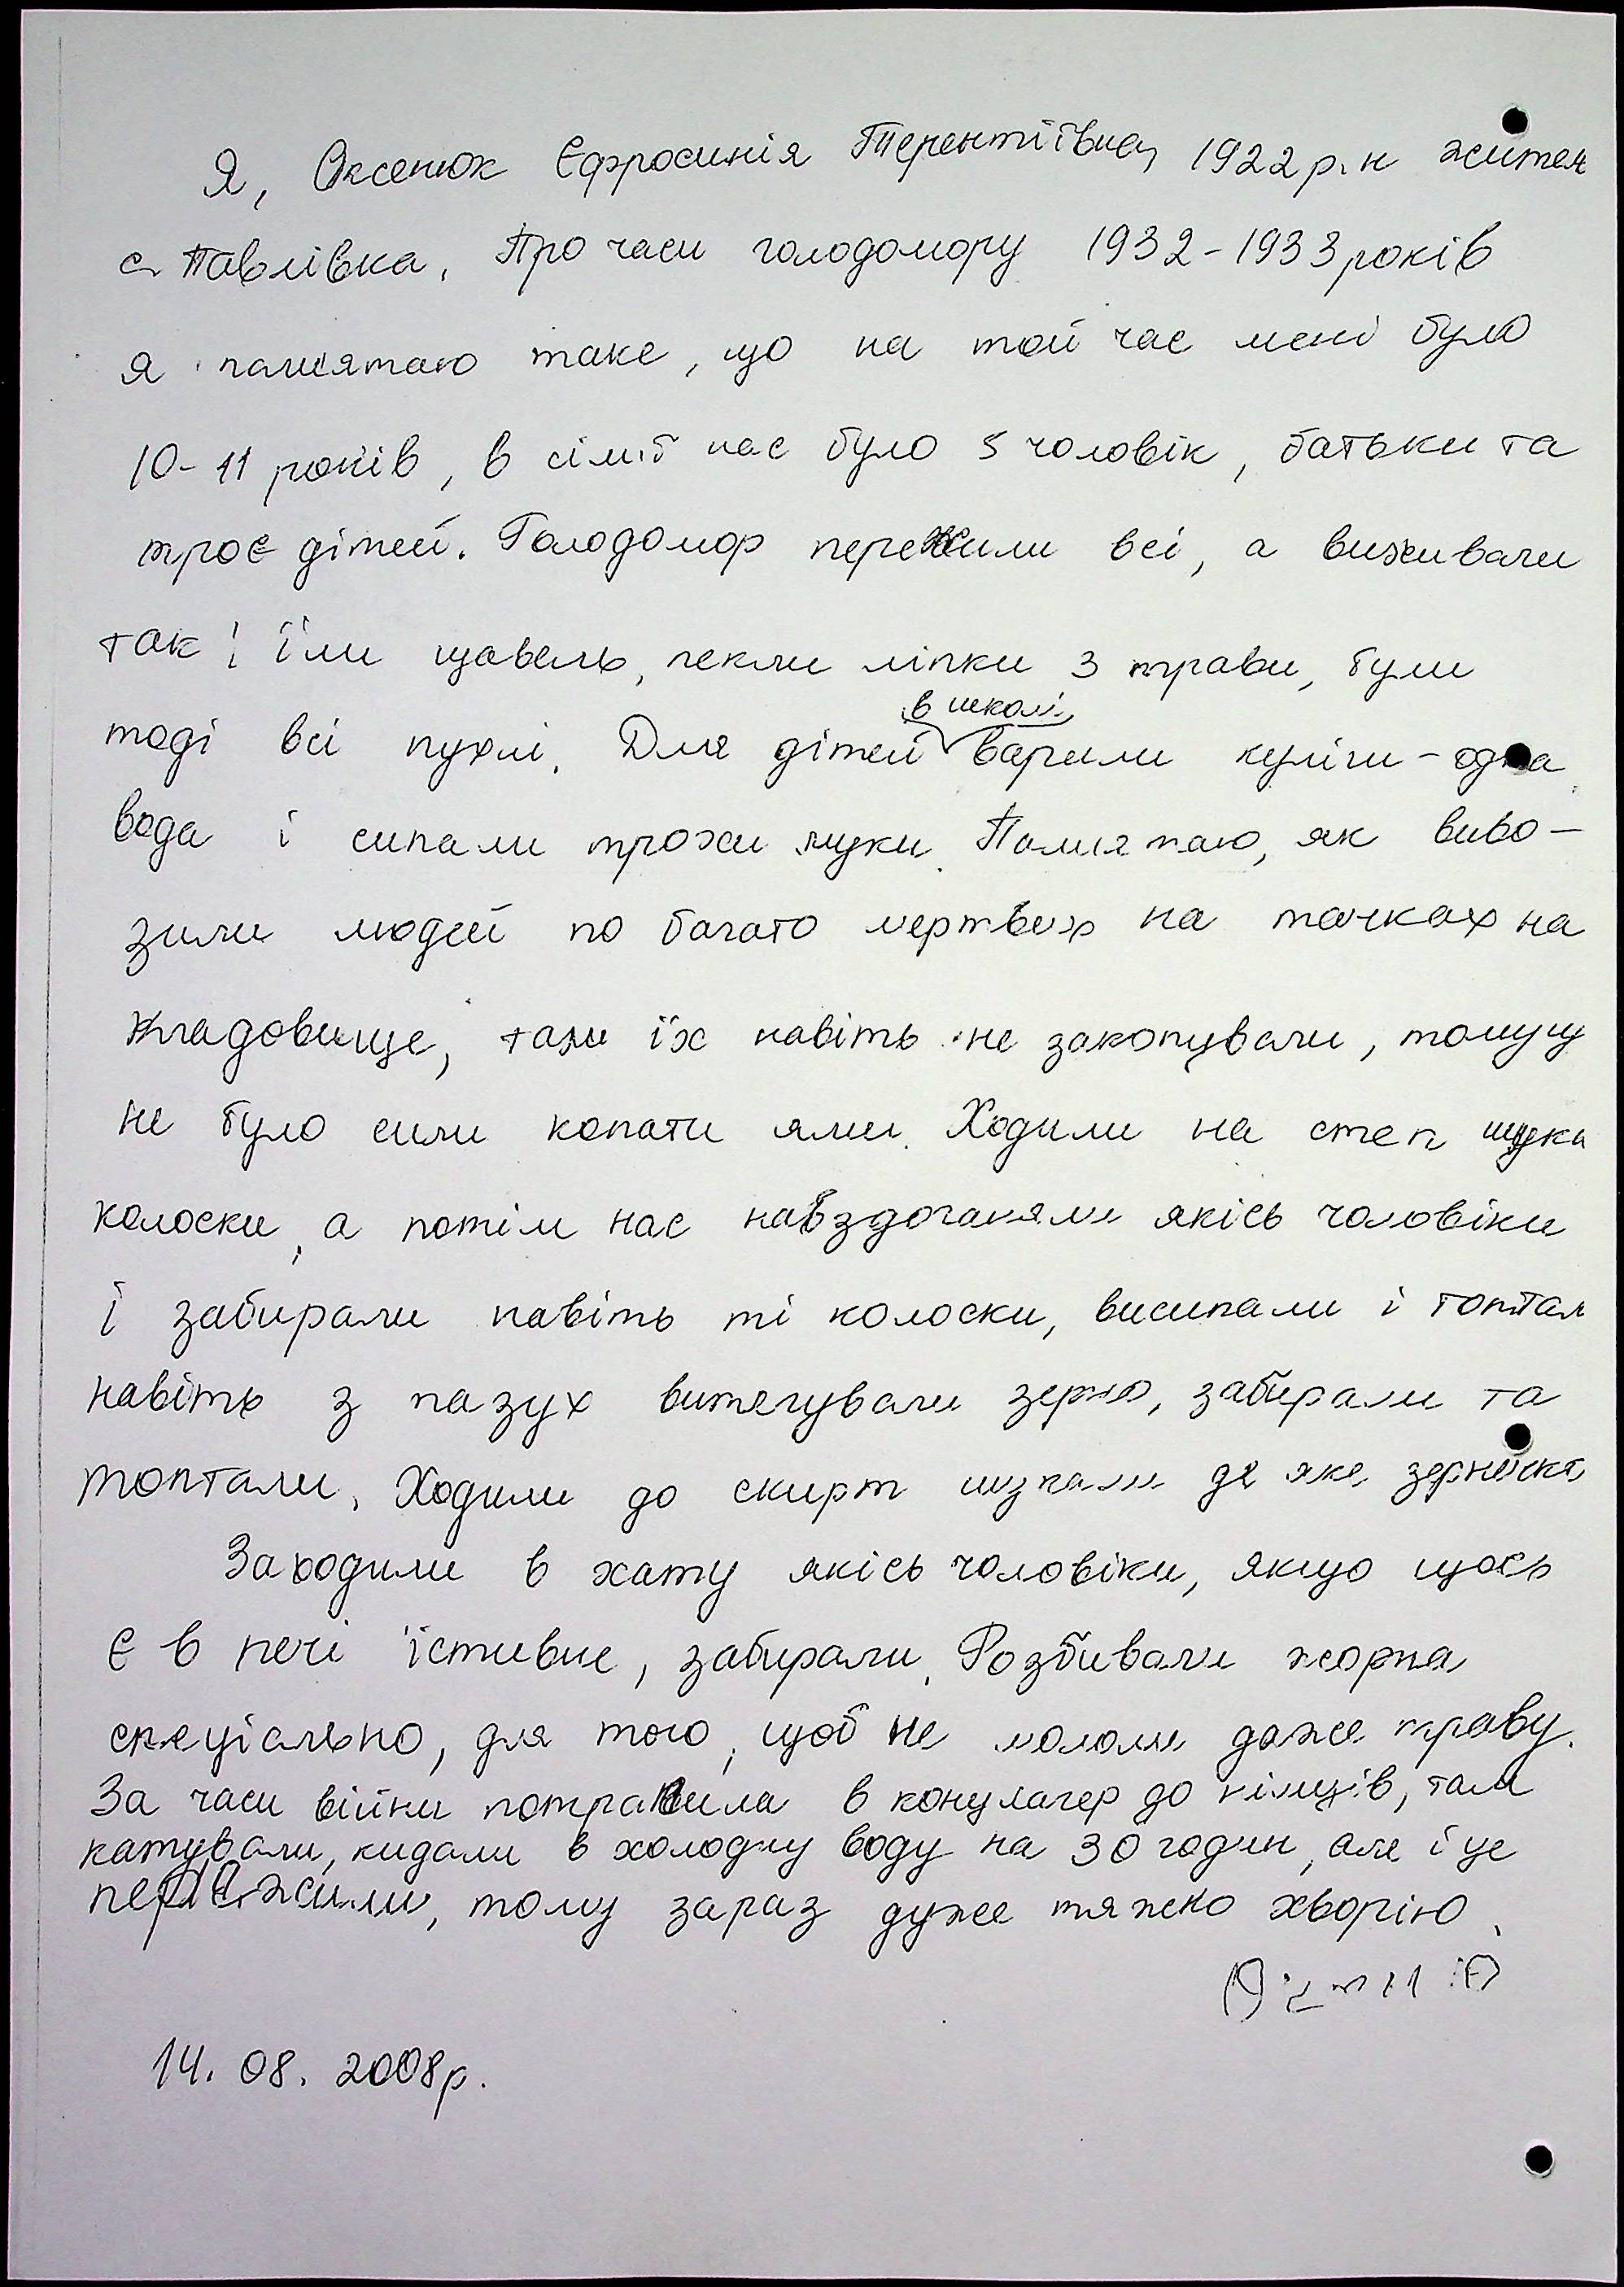 Я, Оксенюк Єфросинія Терентіївна, 1922 р.н жител
с. Павлівка. Про часи голодомору 1932-1933 років
я памʼятаю таке, що на той час мені було
10-11 років, в сімʼї нас було 5 чоловік, батьки та
троє дітей. Голодомор пережили всі, а виживали
так: їли щавель, пекли ліпки з трави, були
тоді всі пухлі. Для дітей в школі варили куліш - одна
вода і сипали трохи муки. Памʼятаю, як виво-
зили людей по багато мертвих на тачках на
кладовище, та й їх навіть не закопували, тому щ
не було сили копати ями. Ходили на степ шука
колоски, а потім нас навздоганяли якісь чоловіки
і забирали навіть ті колоски, висипали і топтал
навіть з пазух витягували зерно, забирали та
топтали. Ходили до скирт шукали де яке зернятко
Заходили в хату якісь чоловіки, якщо щось
є в печі їстивне, забирали. Розбивали жорна
спеціально, для того, щоб не мололи даже траву.
За часи війни потрапила в концлагер до німців, там
катували, кидали в холодну воду на 30 годин, але і це
пережили, тому зараз дуже тяжко хворію.
14. 08. 2008р.